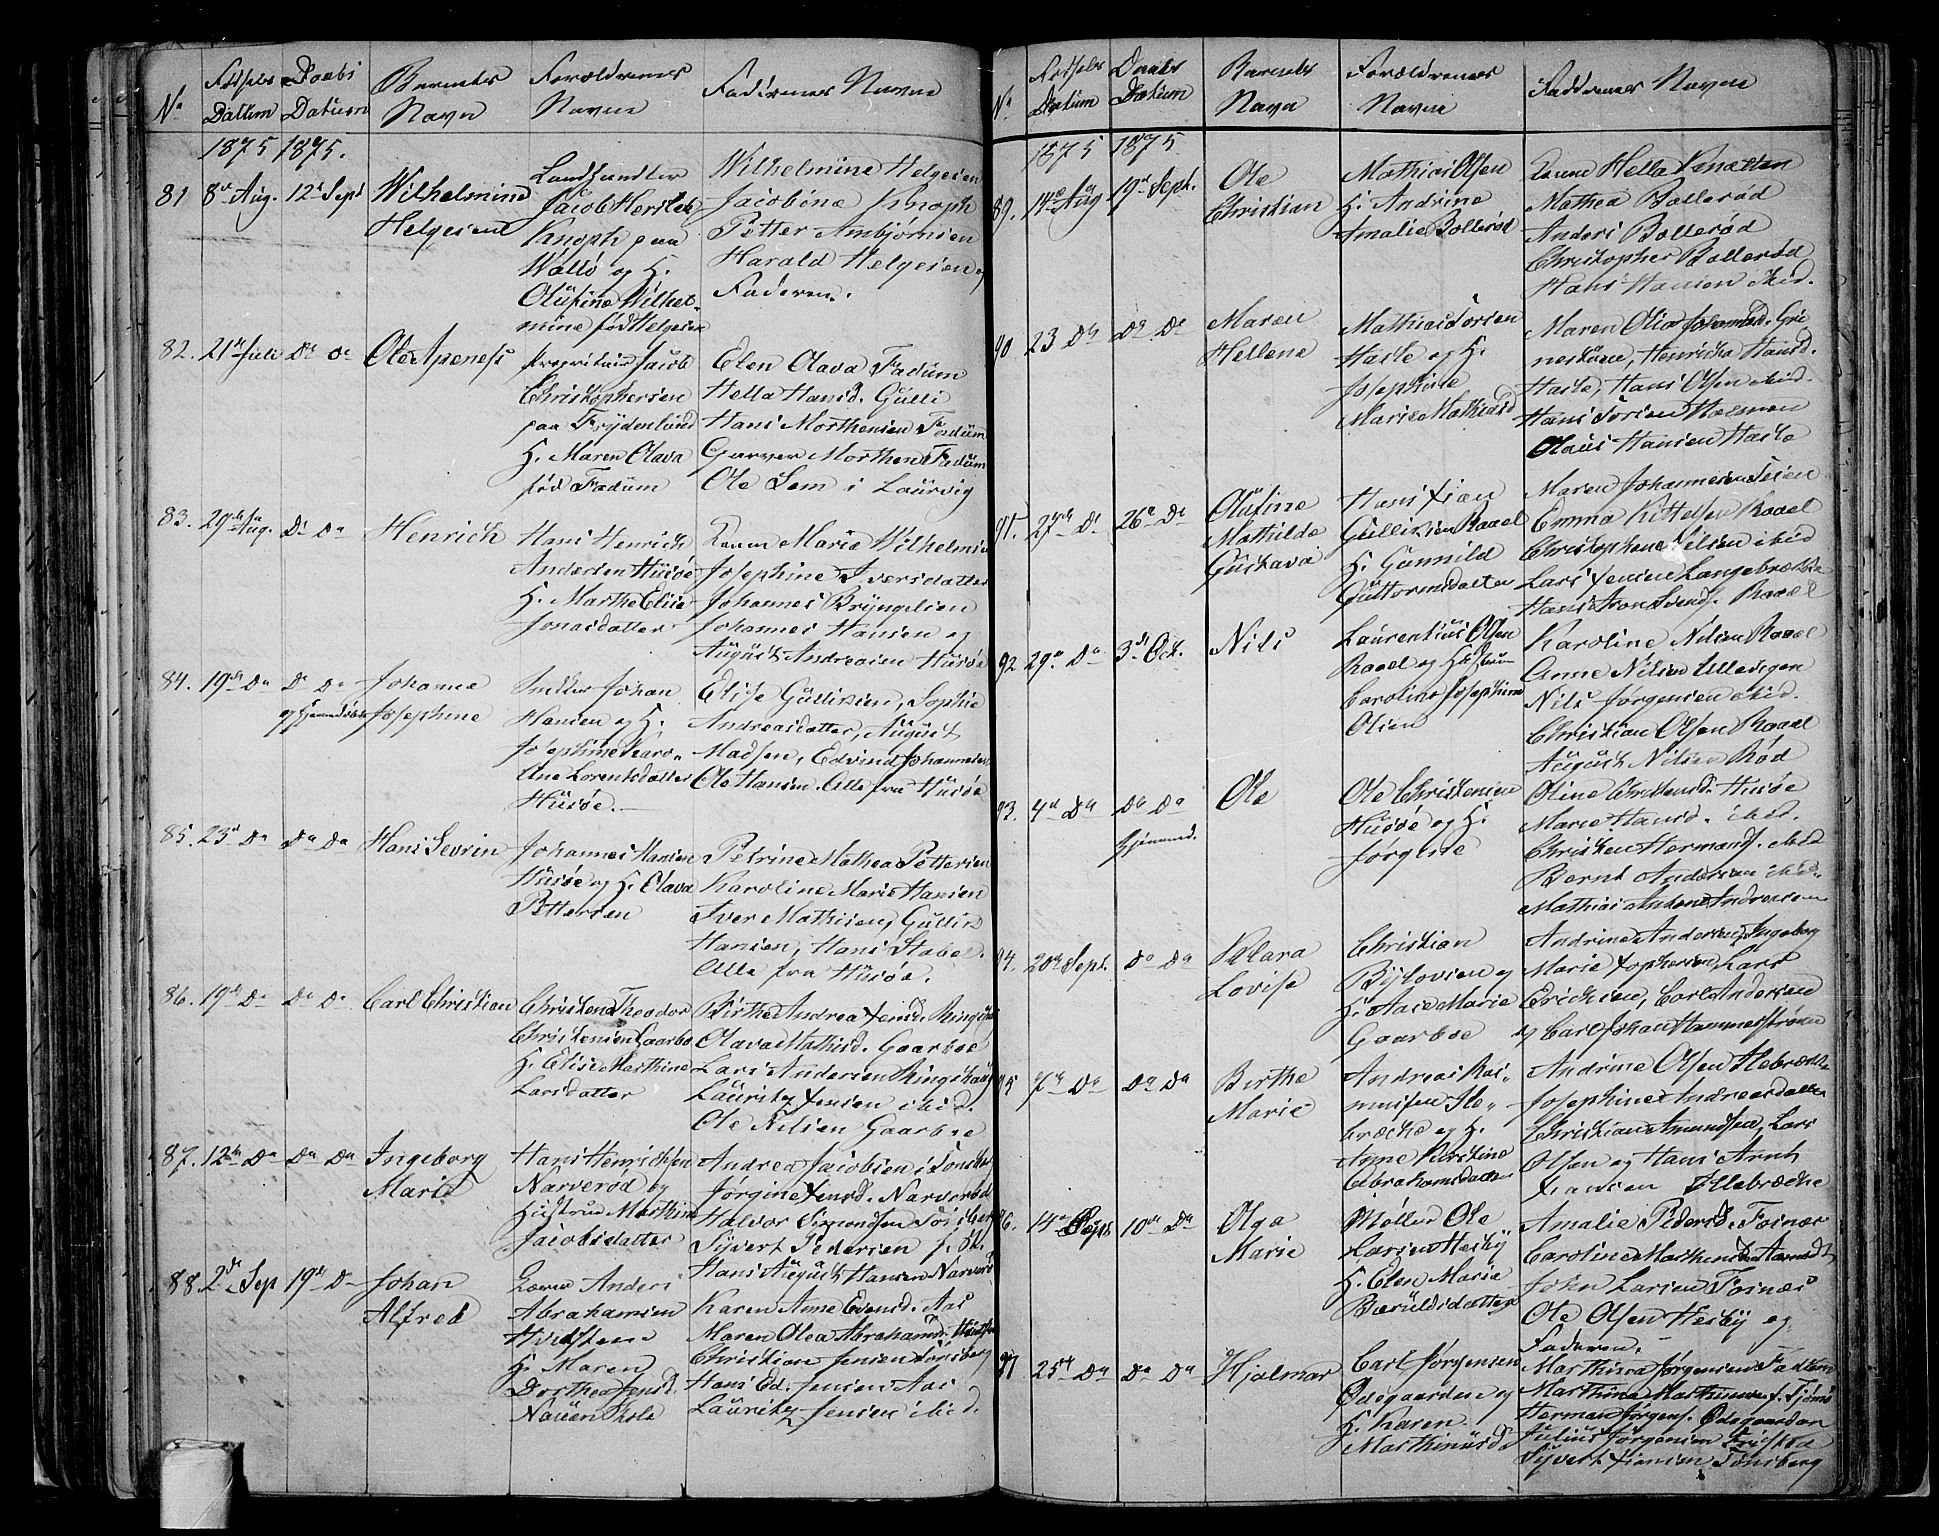 No Fødsels Daabs Barnets Forældrenes Faddrenes Navne
Datum Datum Navn Navne
1875 1875.
81 8de Aug. 12te Sept Wilhelmine Helgesen
Landhandler
Jacob Hersleb
Knoph paa
Wallø og H.
Olufine Wilhel-
mine født Helgesen
Wilhelmine Helgesen
Jacobine Knoph
Petter Ambjørnsen
Harald Helgesen og
Faderen.
82. 21de Juli Do Do Ole Apeness
Proprietair Jacob
Christophersen
paa Frydenlund
H. Maren Olava
fød Fadum
Elen Olava Fadum
Hella Hansd. Gulli
Hans Morthensen Fadum
Garver Morthen Fadum
Ole Sem i Laurvig
83. 29de Aug. Do Do Henrich
Hans Henrich
Andersen Husøe
H. Marthe Elise
Jonasdatter
Konen Marie Wilhelmsen
Josephine Iversdatter
Johannes Bryngelsen
Johannes Hansen og
August Andreasen Husøe
84. 19de Do Do Do Johanne
og hjemmedøbt Josephine
Smeller Johan
Hansen og H.
Josephine Karo-
line Lorentsdatter
Husøe.
Elise Gullixsen, Sophie
Andreasdatter, August
Madsen, Edvind Johannesen
Ole Hansen. Alle fra Husøe
85. 23de Do Do Do Hans Sevrin
Johannes Hansen
Husøe og H. Olava
Pettersen
Petrine Mathea Pettersen
Karoline Marie Hansen
Iver Mathisen, Gullix
Hansen, Hans Stabel.
Alle fra Husøe.
86. 19de Do Do Do Carl Christian
Christen Theodor
Christensen Gaarboe
H. Elise Marthine
Larsdatter
Birthe Andrea Jensd. Ringshaug
Olava Mathisd. Gaarboe
Lars Andersen Ringshaug
Lauritz Jensen ibid.
Ole Nilsen Gaarboe
87. 12te Do Do Do Ingeborg
Marie
Hans Henrichsen
Narverød og
Hustru Marthine
Jacobsdatter
Andrea Jacobsen i Tønsberg
Jørgine Jensd. Narverød
Halvor Simonsen Tønsberg
Syvert Pedersen
Hans August Hansen Narverød
88. 2de Sep 19de Do Johan
Alfred
Anders
Abrahamsen
Hvidsteen
H. Maren
Dorthea Jensd.
Nauen
Karen Anne Evensd. Aas
Maren Olea Abrahamsd.
Christian Jensen Tønsberg
Hans Ed. Jensen Aas
Lauritz Jensen ibid.
No. Fødsels Daabs Barnets Forældrenes Faddrenes Navne
Datum Datum Navn Navne
1875 1875
89. 14de Aug 19de Sept. Ole
Christian
Mathias Olsen
H. Andrine
Amalie Bøllerød
Konen Hella Knatten
Mathea Bøllerød
Anders Bøllerød
Christopher Bøllerød
Hans Hansen ibid.
90 23 Do Do Do Maren
Hellene
Mathias Sørsen
Hasle og H.
Josephine
Marie Mathisd
Maren Olia Johannesd. Gri-
Henrikka Hansd.
Hasle, Hans Olsen ibid.
Hans Sørsen
Olaus Hansen Hasle
91. 27de Do 26de Do Olufine
Mathilde
Gustava
Hans Xian
Gullixsen Raael
H. Gunnild
Guttormsdatter
Maren Johannesen Teien
Emma Kittelsen Raael
Christophene Nilsen ibid
Lars Jensen Langebrække
Hans Aron Svends. Raael
92 29de Do 3de Oct. Nils
Laurentius Olsen
Raael og Hustrue
Caroline Josephine
Olsen
Karoline Nilsen Raael
Anne Nilsen Ullevigen
Nils Jørgensen ibid.
Christian Olsen Raael
August Nilsen Rød
93. 4de Do Do Do Ole
hjemmed.
Ole Christensen
Husøe og H.
Jørgine
Oline Christensd. Husøe
Marie Hansd. ibid.
Christen Hermans. ibid
Bernt Andersen ibid.
Mathias Anton Andreasen
94. 20de Sept. Do Do Klara
Lovise
Christian
og
H. Marie
Gaarboe
Andrine Andersen, Ingeborg
Marie Xophersen Lars
Erichsen, Carl Andersen
og Carl Johan Hammerstrøm
95 7de Do Do Do Birthe
Marie
Andreas Ras-
mussen Ile-
bræche og H.
Anne Kirstine
Abrahamsdatter
Andrine Olsen Ilebræche
Josephine Andreasdatter
Christian Amundsen, Lars
Olsen og Hans Arnt
Hansen Illebræche
96. 14de Sept 10de Do Olga
Marie
Møller Ole
Larsen Hesby
H. Elen Marie
Bæruldsdatter
Amalie Pedersd. Foinæs
Caroline
John Larsen Foinæs
Ole Olsen Hesby og
Faderen.
97 25de Do Do Do Hjalmar
Carl Jørgensen
Ødegaarden og
H. Karen
Marthinusd.
Marthine Jørgensen Fadum
Marthine f. Tjømø
Herman Jørgens. Ødegaarden
Julius Jørgensen
Syvert Hansen Tønsberg